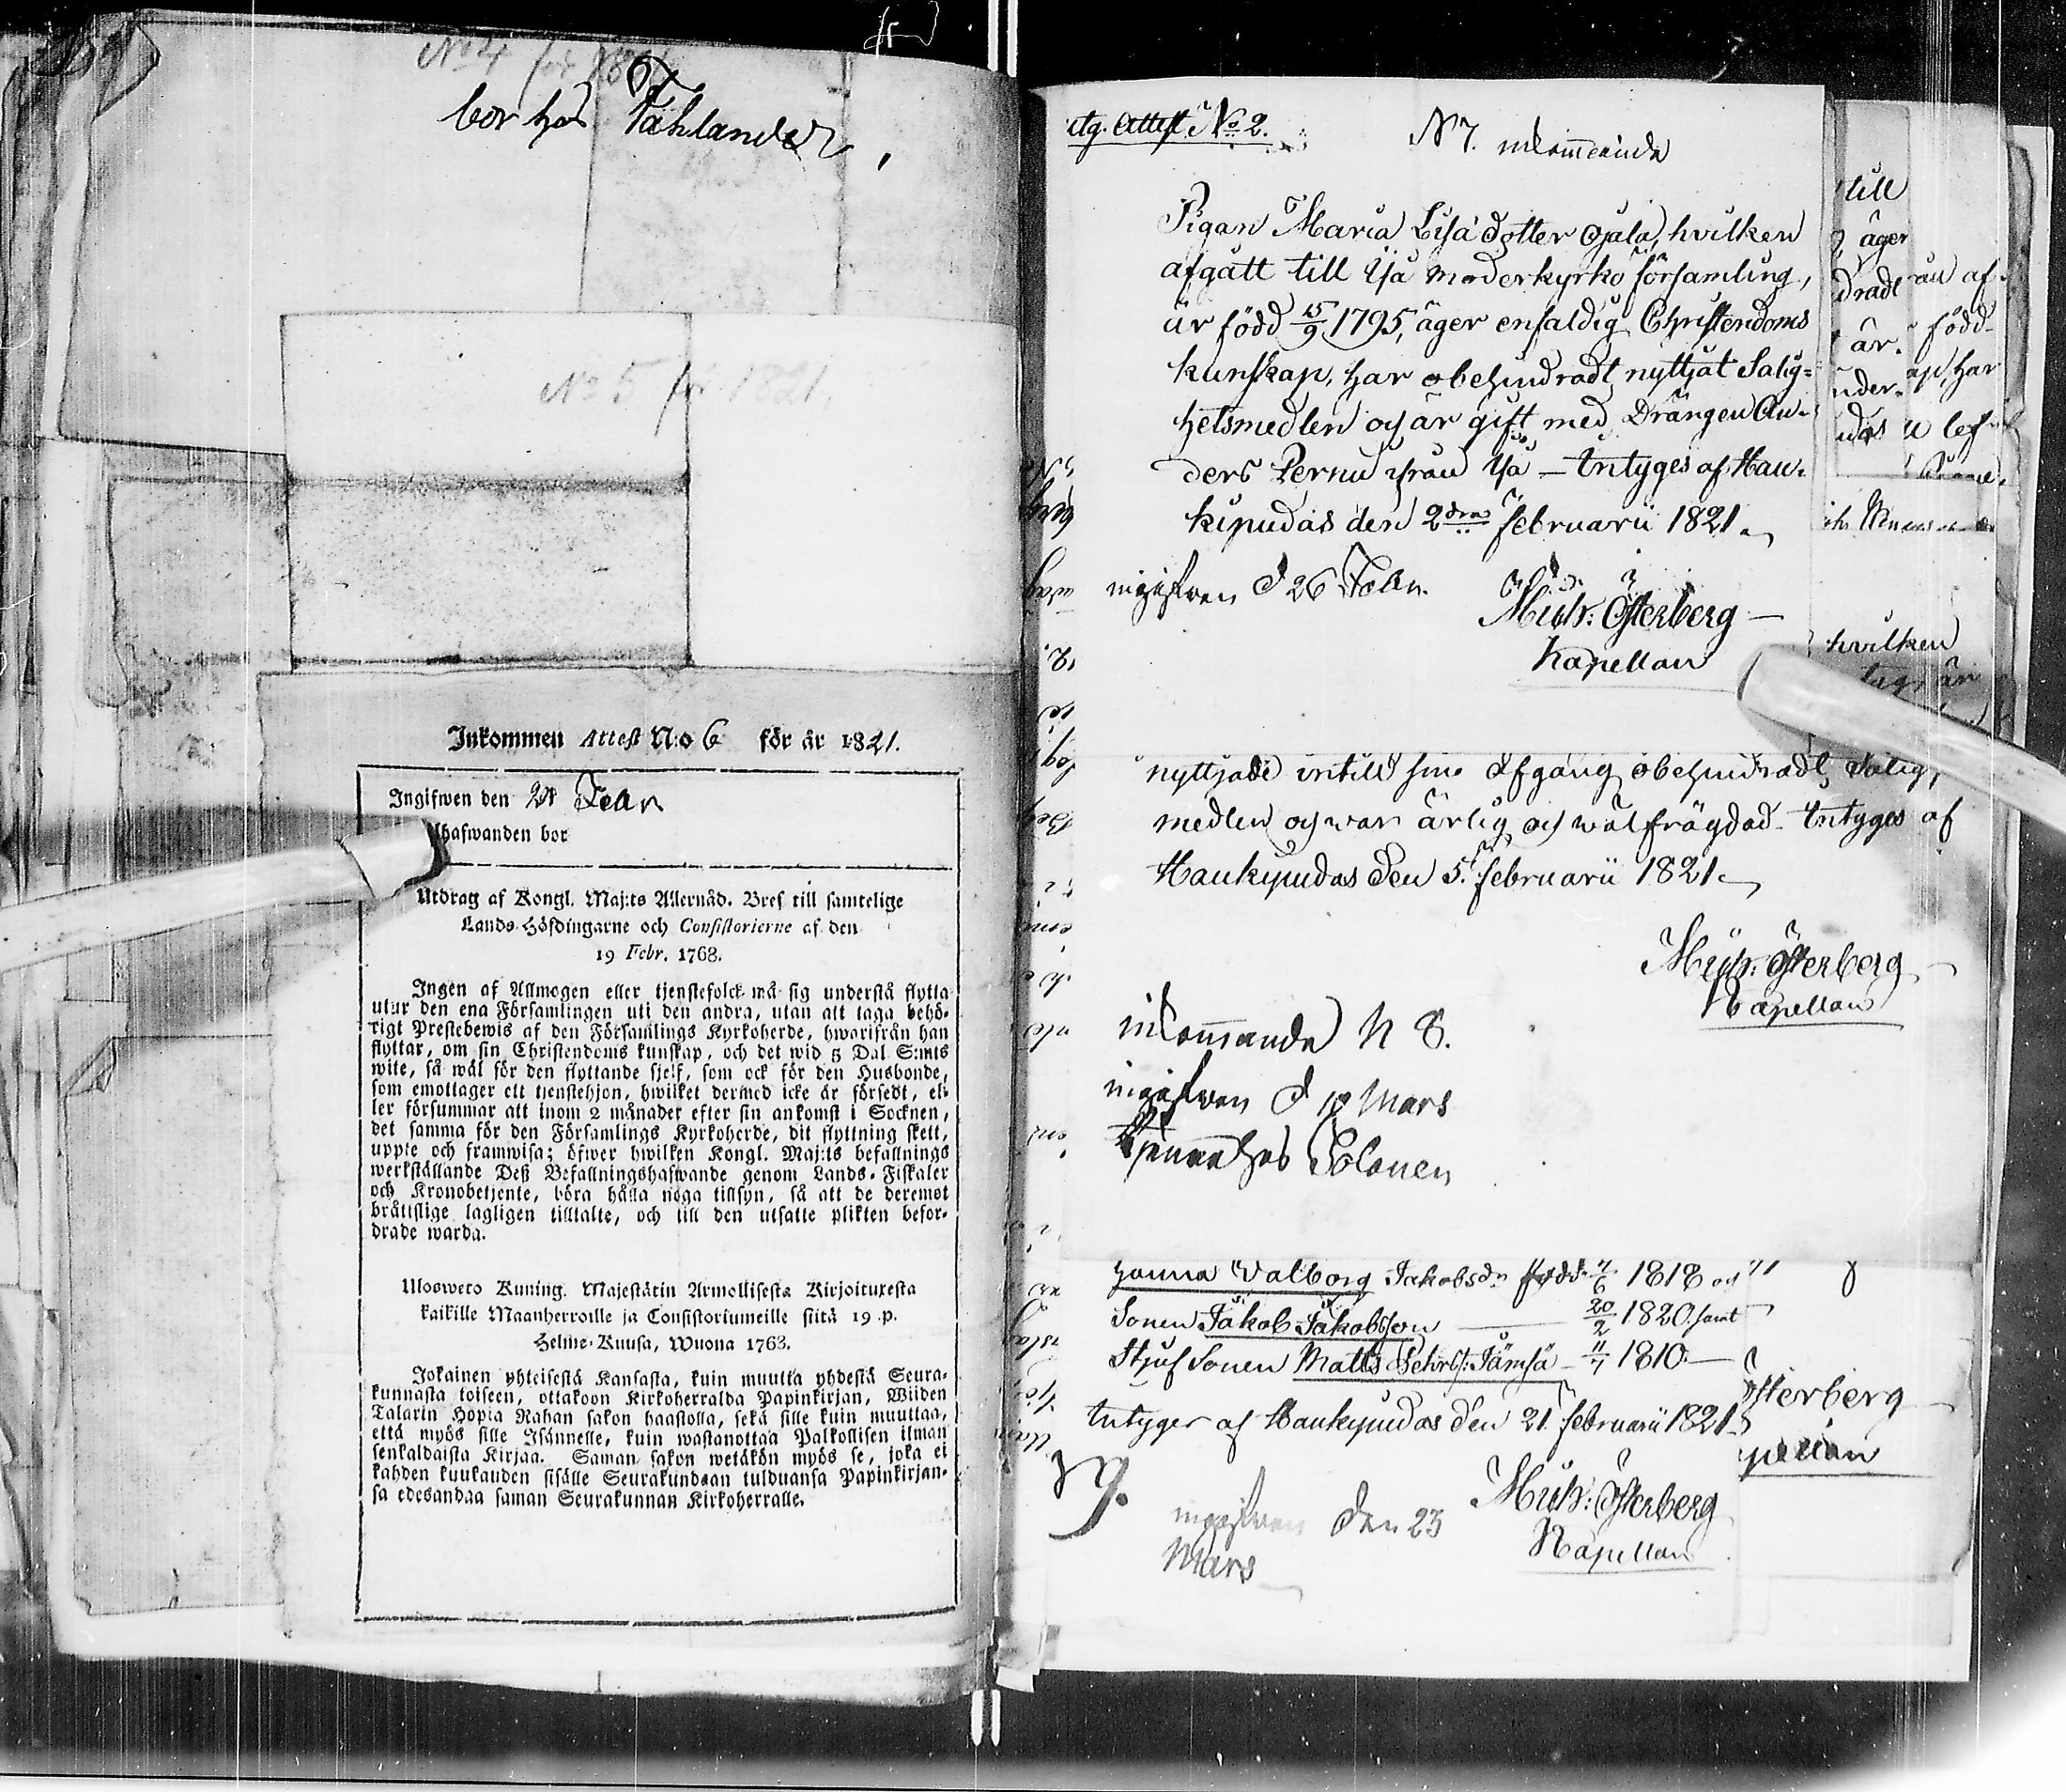 No 4 för 18
bor hos Fahlander,
No 5 för 1821.
Inkommen Attest N:o 6 för år 1821.
Ingifwen den 28 Febr
hafwanden bor
Utdrag af Kongl. Maj:ts Allernåd. Bref till samtelige
Lands-Höfdingarne och Consistorierne af den
19 Febr. 1768.
Ingen af Allmogen eller tjenstefolck må sig understå flytta
utur den ena Församlingen uti den andra, utan att taga behö-
rigt Prestebewis af den Församlings Kyrkoherde, hwarifrån han
flyttar, om sin Christendoms kunskap, och det wid 5 Dal S:mts
wite, så wäl för den flyttande sjelf, som ock för den Husbonde,
som emottager ett tjenstehjon, hwilket dermed icke är försedt, el-
ler försummar att inom 2 månader efter sin ankomst i Socknen,
det samma för den Församlings Kyrkoherde, dit flyttning skett,
uppte och framwisa; öfwer hwilken Kongl. Maj:ts befallnings
werkställande Deß Befallningshafwande genom Lands-Fiskaler
och Kronobetjente, böra hålla noga tillsyn, så att de deremot
bråttslige lagligen tilltalte, och till den utsatte plikten befor-
drade warda.
Ulosweto Kuning. Majestätin Armollisesta Kirjoituxesta
kaikille Maanherroille ja Consistoriumeille siitä 19 p.
Helme-Kuusa, Wuona 1768.
Jokainen yhteisestä Kansasta, kuin muutta yhdestä Seura-
kunnasta toiseen, ottakoon Kirkoherralda Papinkirjan, Wiiden
Talarin Hopia Rahan sakon haastolla, sekä sille kuin muuttaa,
että myös sille Isännelle, kuin wastanottaa Palkollisen ilman
senkaldaista Kirjaa. Saman sakon wetäkön myös se, joka ei
kahden kuukauden sisälle Seurakundaan tulduansa Papinkirjan-
sa edesandaa saman Seurakunnan Kirkoherralle.
utg. Attest No 2.
N 7. inkommande
Pigan Maria Lisa dotter Ojala, hvilken
afgått till Ijå moderkyrko församling,
är född 15/9 1795, äger enfaldig Christendoms
kunskap, har obehindradt nyttjat Salig=
hetsmedlen och är gift med Drängen An-
ders Pernu ifrån Ijå — Intyges af Hau-
kipudas den 2dra februarii 1821.
ingifven d 26 Febr.
Mich: Österberg
Kapellan
till
äger
dradt
är
hvilken
nyttjade intill sin afgång obehindradt Salig,
medlen och war ärlig och wälfrägdad. Intyges af
Haukipudas den 5. februarii 1821.
Mich: Österberg
Kapellan
inkommande N 8.
ingifven d 10 Mars
tjenar hos Solonen
Hanna Valborg Jakobsdr född 4/6 1818 och
Sonen Jakob Jakobsson 20/2 1820. samt
Stjuf Sonen Matts Pehrs: Jämsä 11/7 1810.
Intyger af Haukipudas den 21. februarii 1821
N 9.
ingifven den 23
Mars
Mich: Österberg
Kapellan
österberg
pellan